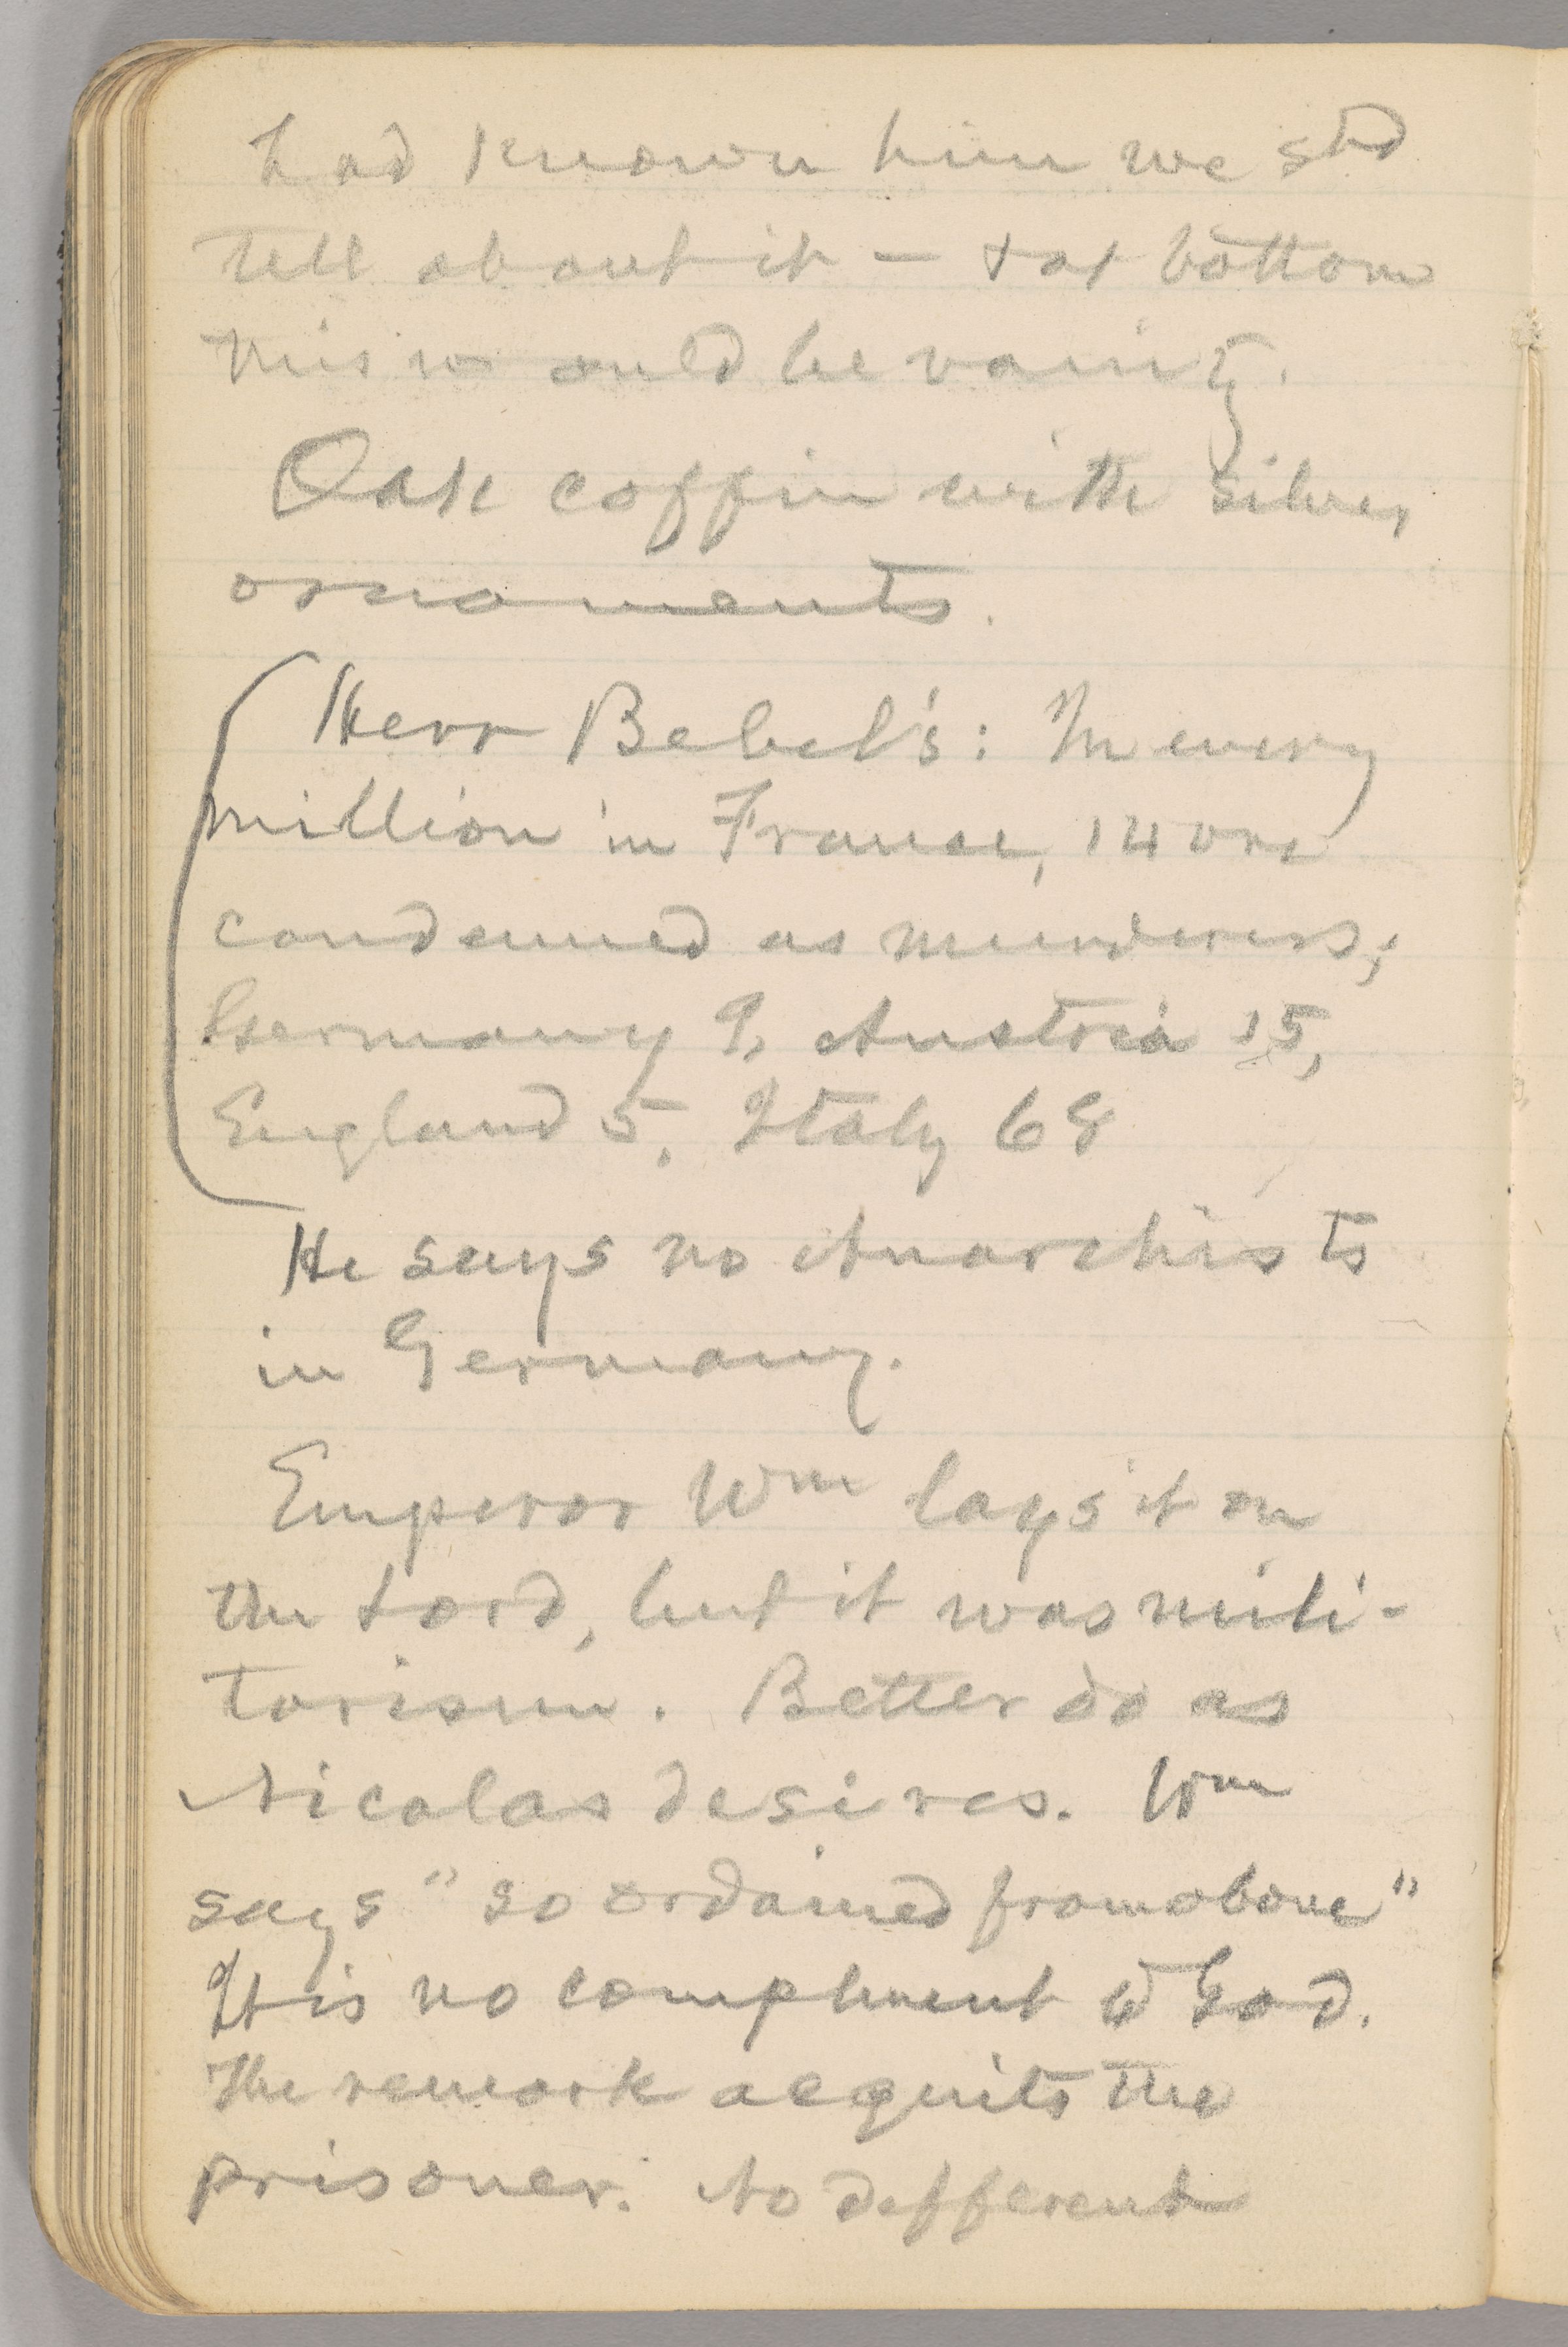 had known him we shd
tell about it — & at bottom
this would be vanity.
Oak coffin with silver
ornaments.
Herr Bebel's: In every
million in France, 14 are
condemned as murderers;
Germany 9, Austria 15,
England 5, Italy 68
He says no Anarchists
in Germany.
Emperor Wm lays it on
the Lord, but it was mili-
tarism. Better do as
Nicolas desires. Wm
says "so ordained from above"
It is no compliment to God.
The remark acquits the
prisoner. No different